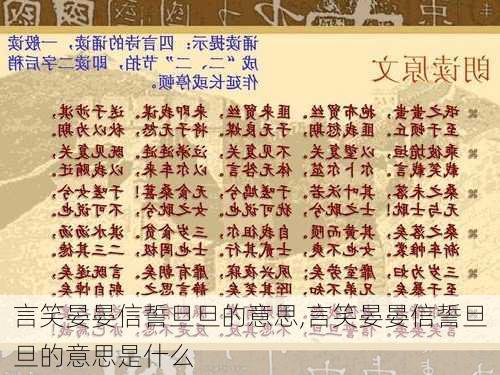 朗读原文
诵读提示：四言诗的诵读，一般读
成“二、二”拍节，即读二字后稍
作延长或停顿。
氓之蚩蚩，抱布贸丝。匪来贸丝，来即我谋。送子涉淇，
至于顿丘。匪我愆期，子无良媒。将子无怒，秋以为期。
乘彼垝垣，以望复关。不见复关，泣涕涟涟。既见复关，
载笑载言。尔卜尔筮，体无咎言。以尔车来，以我贿迁。
桑之未落，其叶沃若。于嗟鸠兮，无食桑葚！于嗟女兮，
无与士耽！士之耽兮，犹可说也。女之耽兮，不可说也。
桑之落矣，其黄而陨。自我徂尔，三岁食贫。淇水汤汤，
渐车帷裳。女也不爽，士贰其行。士也罔极，二三其德。
三岁为妇，靡室劳矣；夙兴夜寐，靡有朝矣。言既遂矣，
言笑晏晏信誓旦旦的意思,言笑晏晏信誓旦
旦的意思是什么